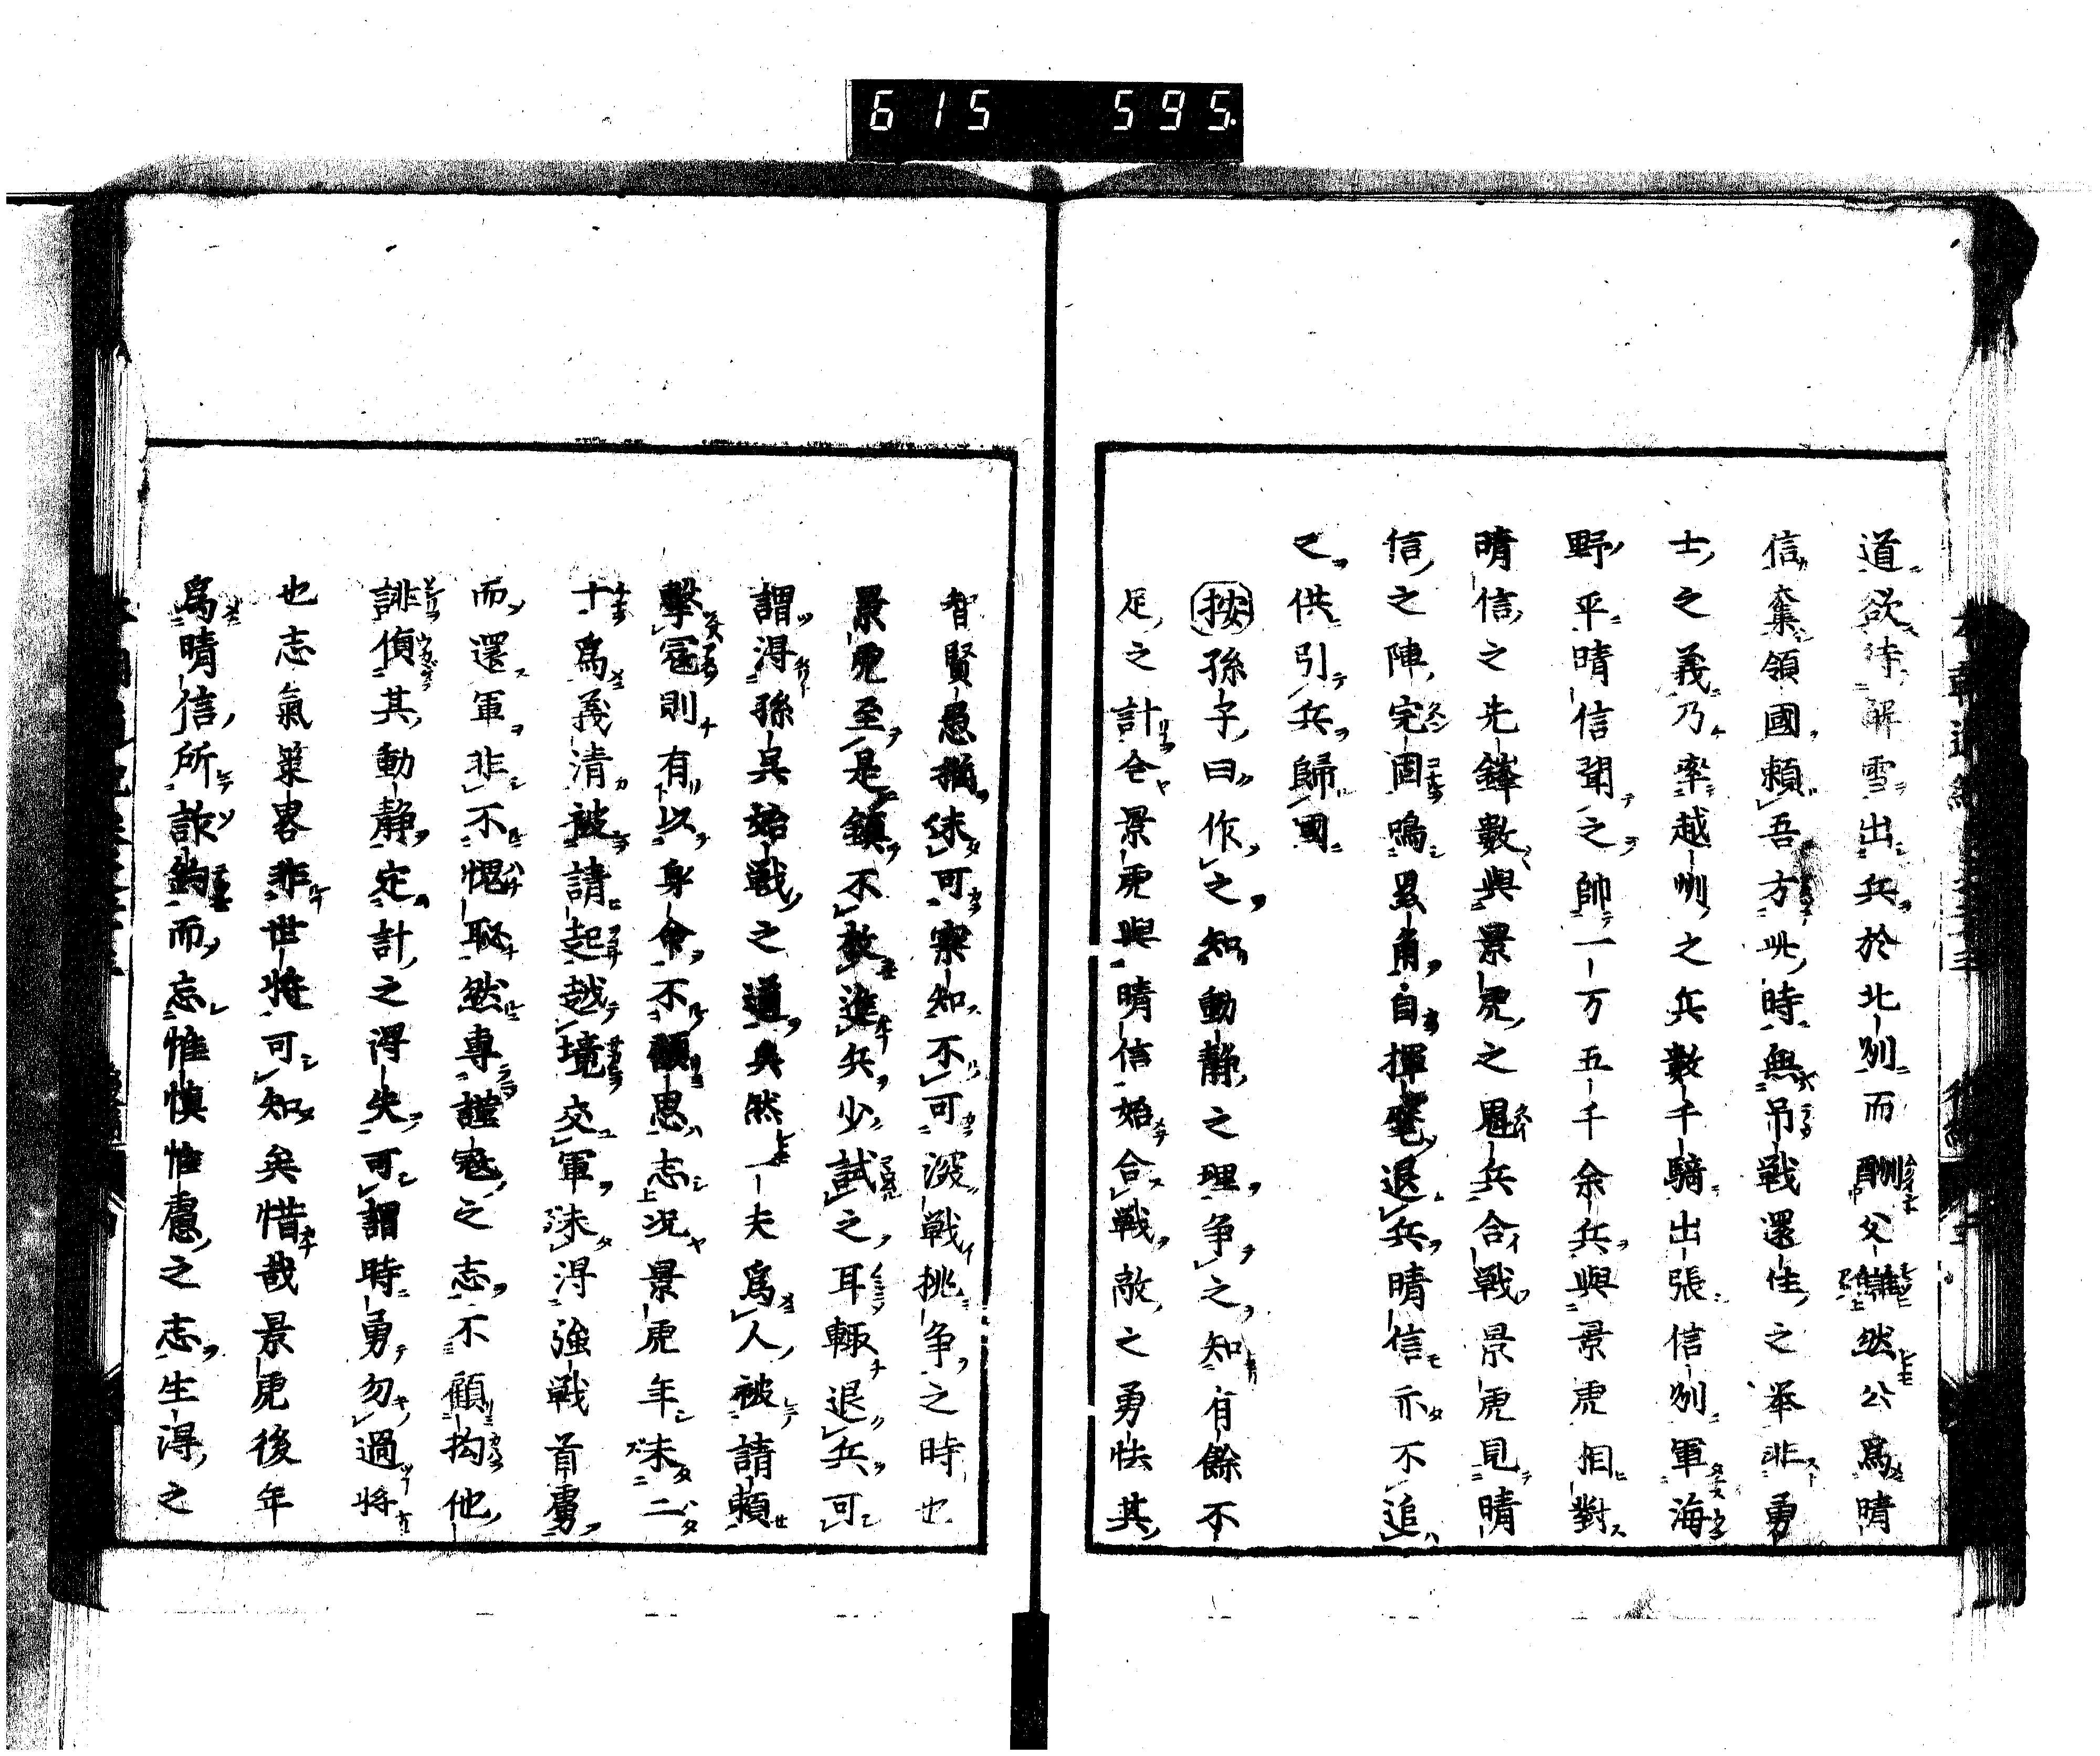 615 595.
道欲待解雪出兵於北列而酬父讎然公爲晴
信奪領國頼吾方此時無吊戦還住之挙非勇
士之義乃率越刕之兵數千騎出張信列軍海
野平晴信聞之帥一万五千余兵與景虎相對
晴信之先鋒數與景虎之魁兵合戦景虎見晴
信之陣完固鳴畧角自揮麾退兵晴信亦不追
之供引兵歸國
按孫子曰作之知動靜之理争之知有餘不
足之計仝景虎與晴信始合戦敵之勇怯其
智賢愚猶未可察知不可深戦挑争之時也
景虎至是鎮不敖進兵少試之耳輙退兵可
謂得孫呉始戦之道矣然一夫爲人被請頼
擊寇則有以身命不顧思志况景虎年未二
十爲義清被請起越境交軍未得強戦首虜
而還軍非不愧耻然專謹寇之志不顧拘他
誹偵其動靜定計之得失可謂時勇勿過將
也志氣策畧非世將可知矣惜哉景虎後年
爲晴信所詠釣而忘惟慎惟慮之志生得之